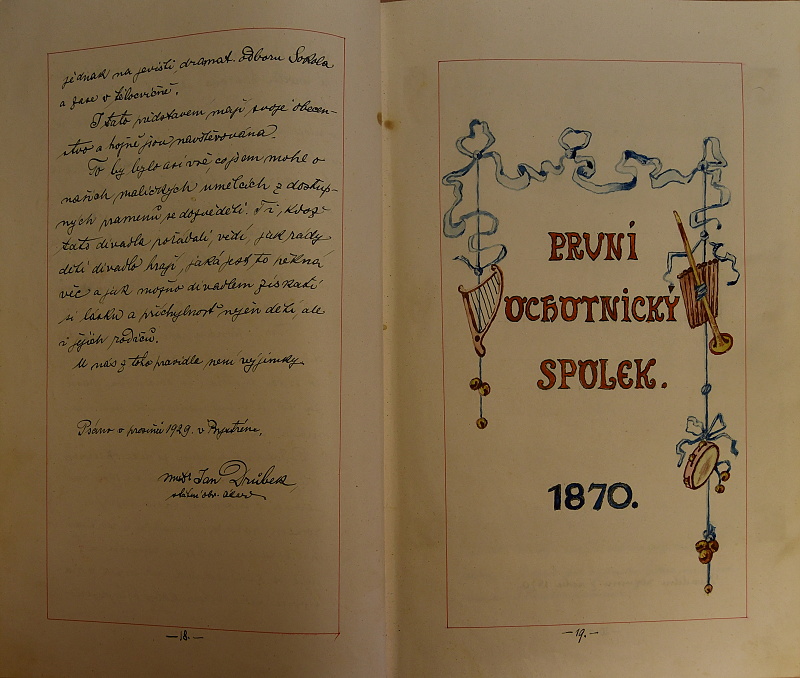 jednak na jevišti dramat. odboru Sokola
a zase v tělocvičně.
I tato představení mají svoje obecen-
stvo a hojně jsou navštěvována.
To by bylo asi vše, co jsem mohl o
našich maličkých umělcích z dostup-
ných pramenů se dozvěděti. Ti, kdož
tato divadla pořádali, vědí, jak rády
děti divadlo hrají, jaká jest to pěkná
věc a jak možno divadlem získati
si lásku a příchylnost nejen dětí, ale
i jejich rodičů.
U nás z toho pravidla není výjimky.
Psáno v prosinci 1929. v Bystřeci.
Jan Drůbek
- 18. -
PRVNÍ
OCHOTNICKÝ
SPOLEK.
1870.
- 19. -